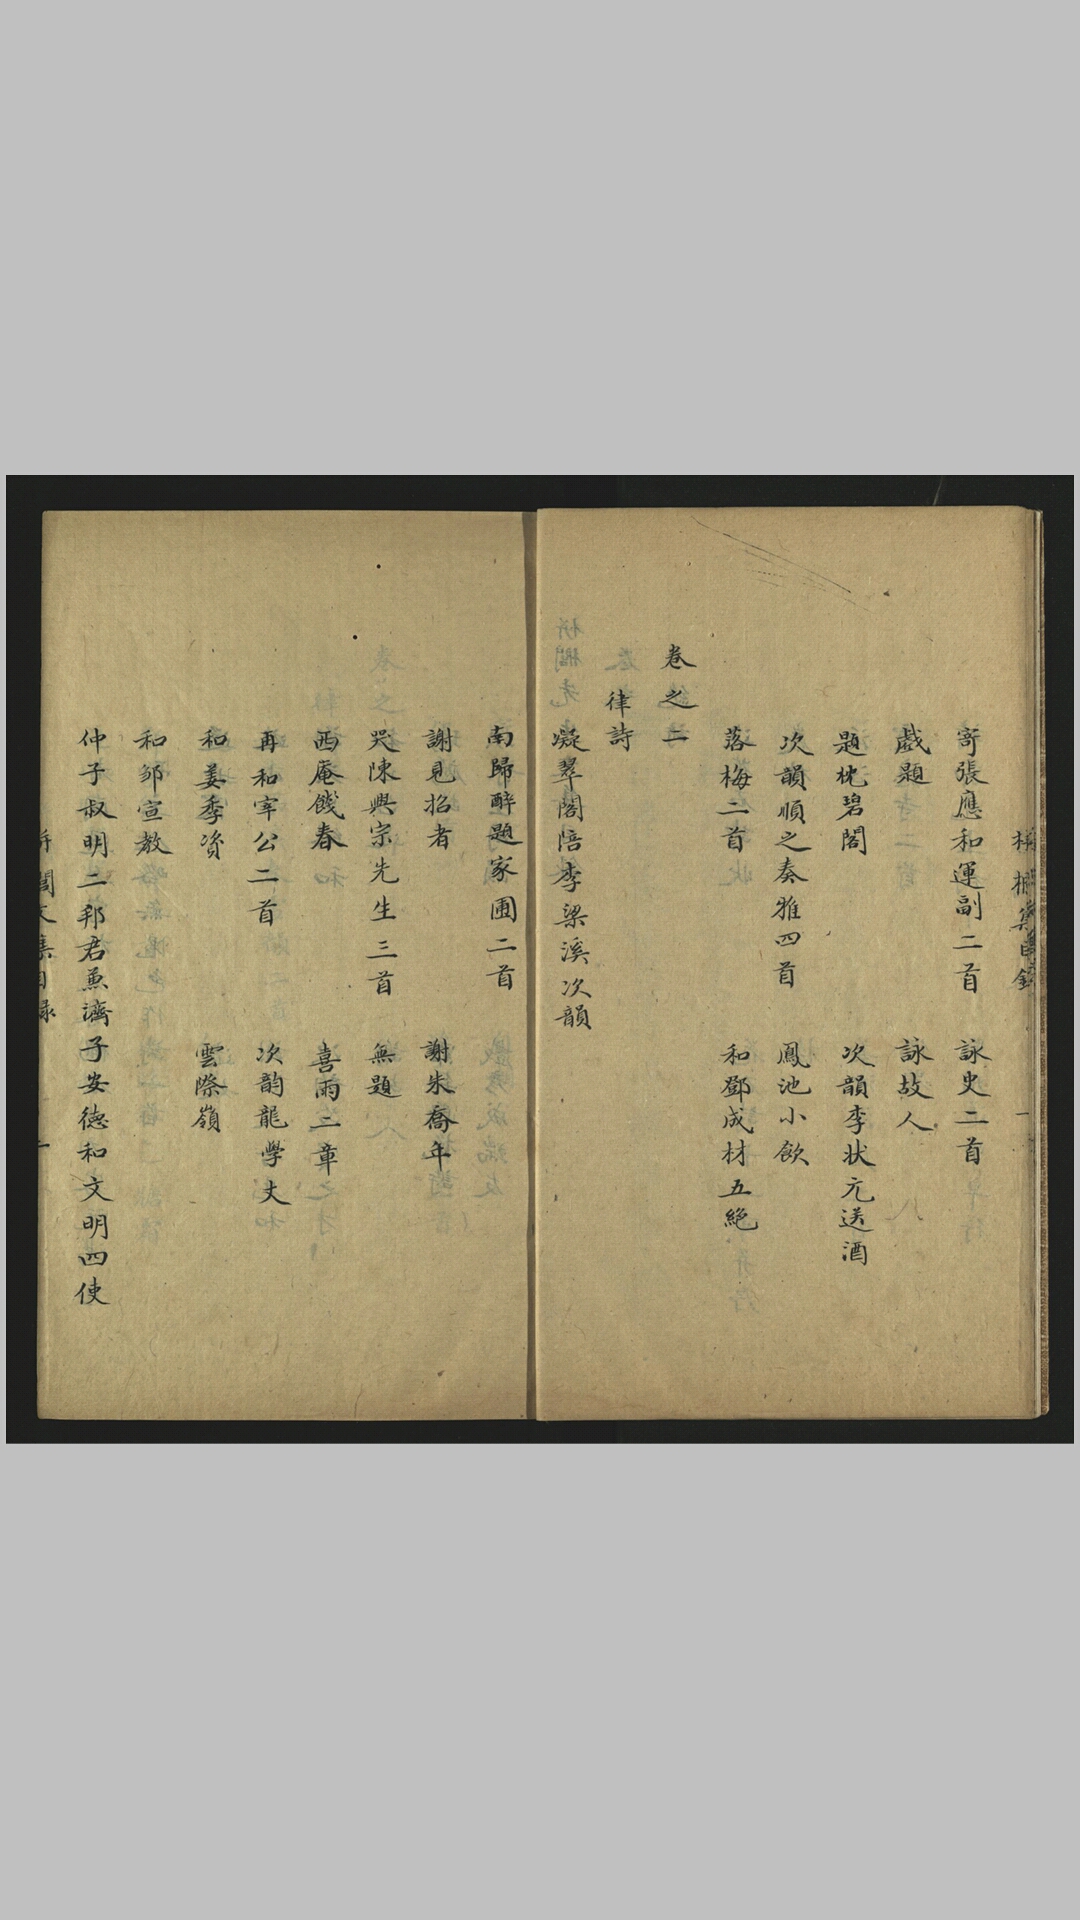 寄張應和運副二首 詠史二首
戲題 詠故人
題枕碧閣 次韻李狀元送酒
次韻順之奏雅四首 鳳池小飲
落梅二首 和鄧成材五絕
卷之二
律詩
凝翠閣陪李梁溪次韻
南歸醉題家圃二首
謝見招者 謝朱喬年
哭陳興宗先生三首 無題
西庵餞春 喜雨三章
再和宰公二首 次韵龍學丈
和姜季资 雲際嶺
和邹宣教
仲子叔明二邦君兼濟子安德和文明四使